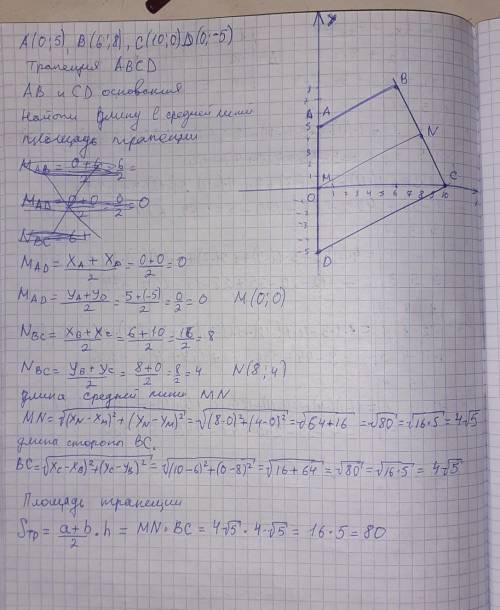 A(0;5), B(6;8), C(10;0) D(0;-5)
Трапеция ABCD
AB и CD основания
Найти длину средней линии
площадь трапеции
M_AB = (0+6)/2 = 6/2 =
M_AD = (0+0)/2 = 0/2 = 0
N_BC = 6+
M_AD = (x_A + x_D)/2 = (0+0)/2 = 0
M_AD = (y_A + y_D)/2 = (5+(-5))/2 = 0/2 = 0 M(0;0)
N_BC = (x_B + x_C)/2 = (6+10)/2 = 16/2 = 8
N_BC = (y_B + y_C)/2 = (8+0)/2 = 8/2 = 4 N(8;4)
длина средней линии MN
MN = √((x_N - x_M)² + (y_N - y_M)²) = √((8-0)² + (4-0)²) = √(64+16) = √80 = √(16·5) = 4√5
длина стороны BC.
BC = √((x_C - x_B)² + (y_C - y_B)²) = √((10-6)² + (0-8)²) = √(16+64) = √80 = √(16·5) = 4√5
Площадь трапеции
S_тр = (a+b)/2 · h = MN · BC = 4√5 · 4√5 = 16·5 = 80
B
A
5
N
M
C
1 2 3 4 5 6 7 8 9 10
-5
D